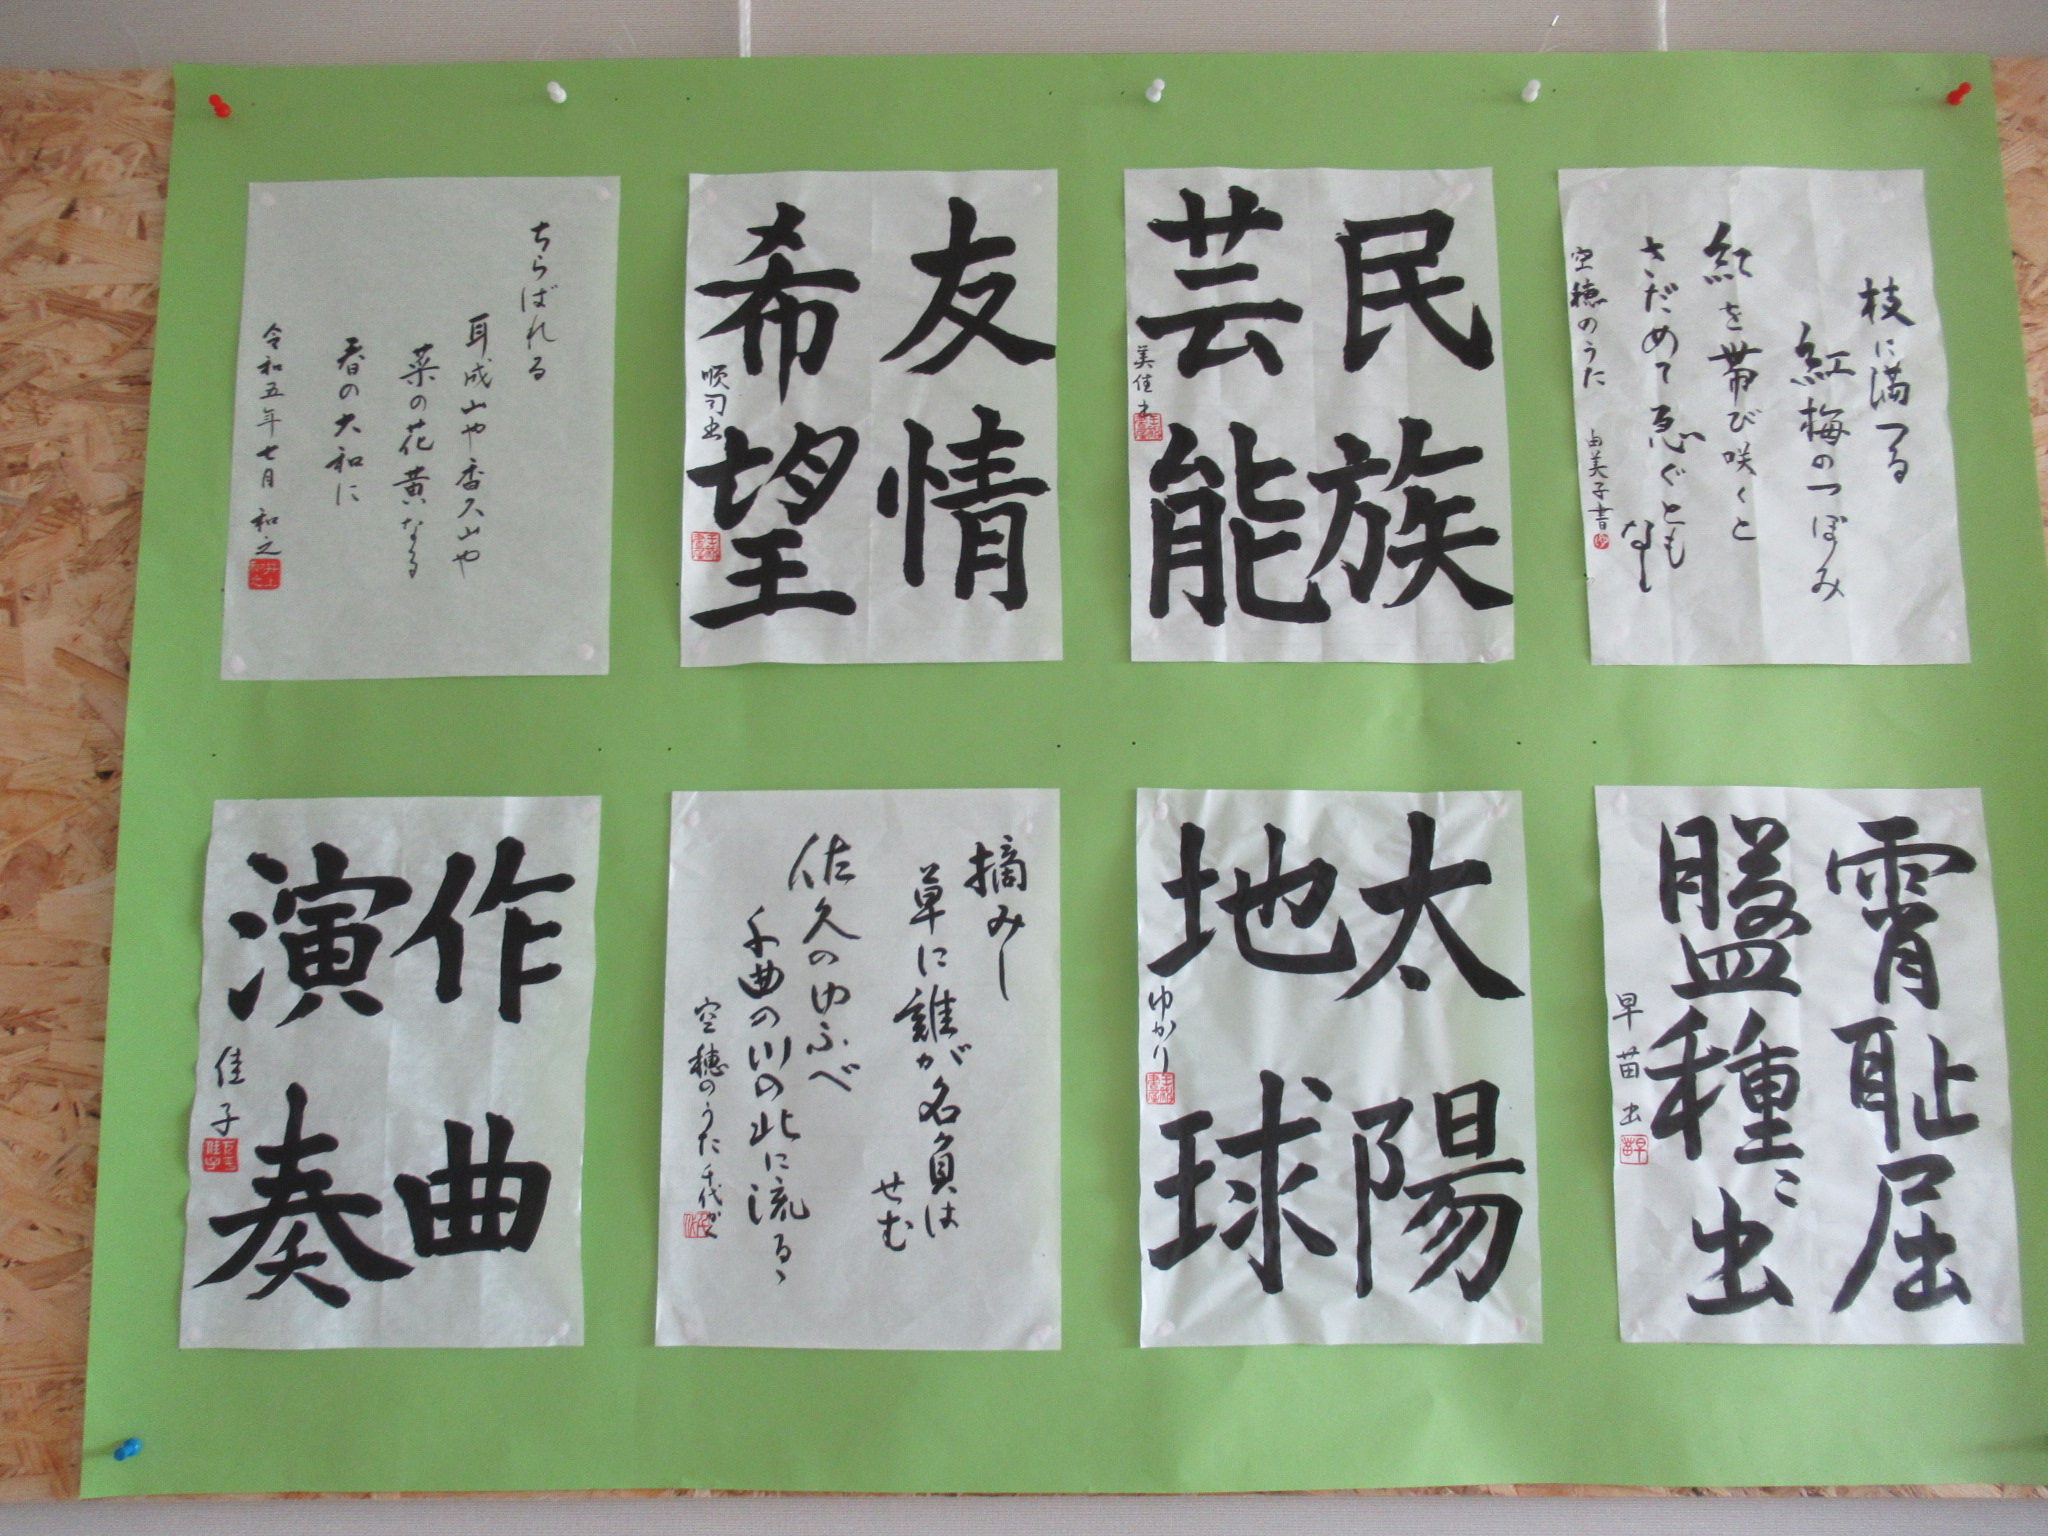 枝に満つる
紅梅のつぼみ
紅を帯び咲くと
さだめて急ぐとも
なし
空穂のうた 由美子書
民族
芸能
美佳書
友情
希望
順司書
ちらばれる
耳成山や香久山や
菜の花黄なる
春の大和に
令和五年七月 和之
井上和之
霄耻屈
盤種〻出
早苗書
太陽
地球
ゆかり
摘みし
草に誰が名負は
せむ
佐久のゆふべ
千曲の川の北に流るゝ
空穂のうた 千代
作曲
演奏
佳子